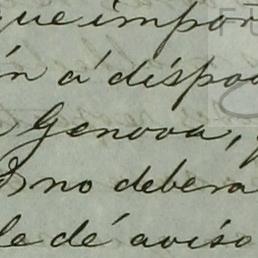 que impor
n á dispo
Genova,
no debera
le dé aviso